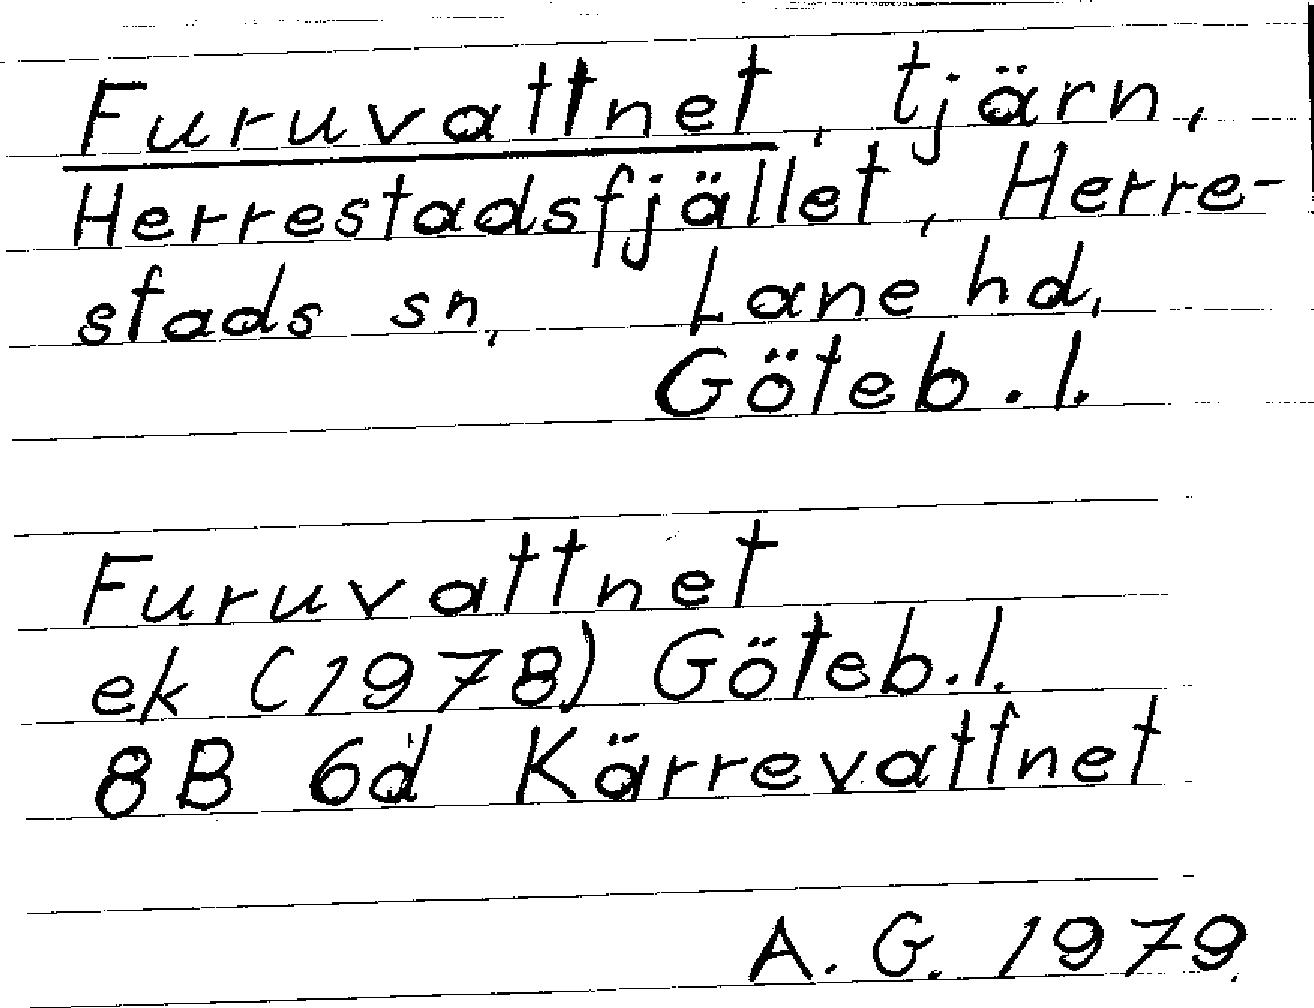 Furuvattnet, tjärn,
Herrestadsfjället, Herre-
stads sn, Lane hd,
Göteb.l.
Furuvattnet
ek (1978) Göteb.l.
8B 6d Kärrevattnet
A. G. 1979.